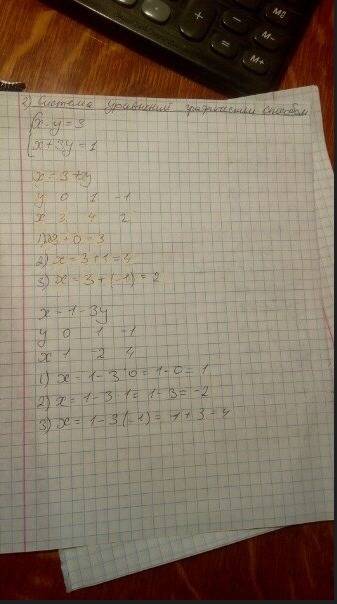 M
M-
M+
2) Система уравнений графическим способом
{x-y=3
x+3y=1
x=3+y
y 0 1 -1
x 3 4 2
1) 3+0=3
2) x=3+1=4
3) x=3+(-1)=2
x=1-3y
y 0 1 -1
x 1 -2 4
1) x=1-3·0=1-0=1
2) x=1-3·1=1-3=-2
3) x=1-3(-1)=1+3=4